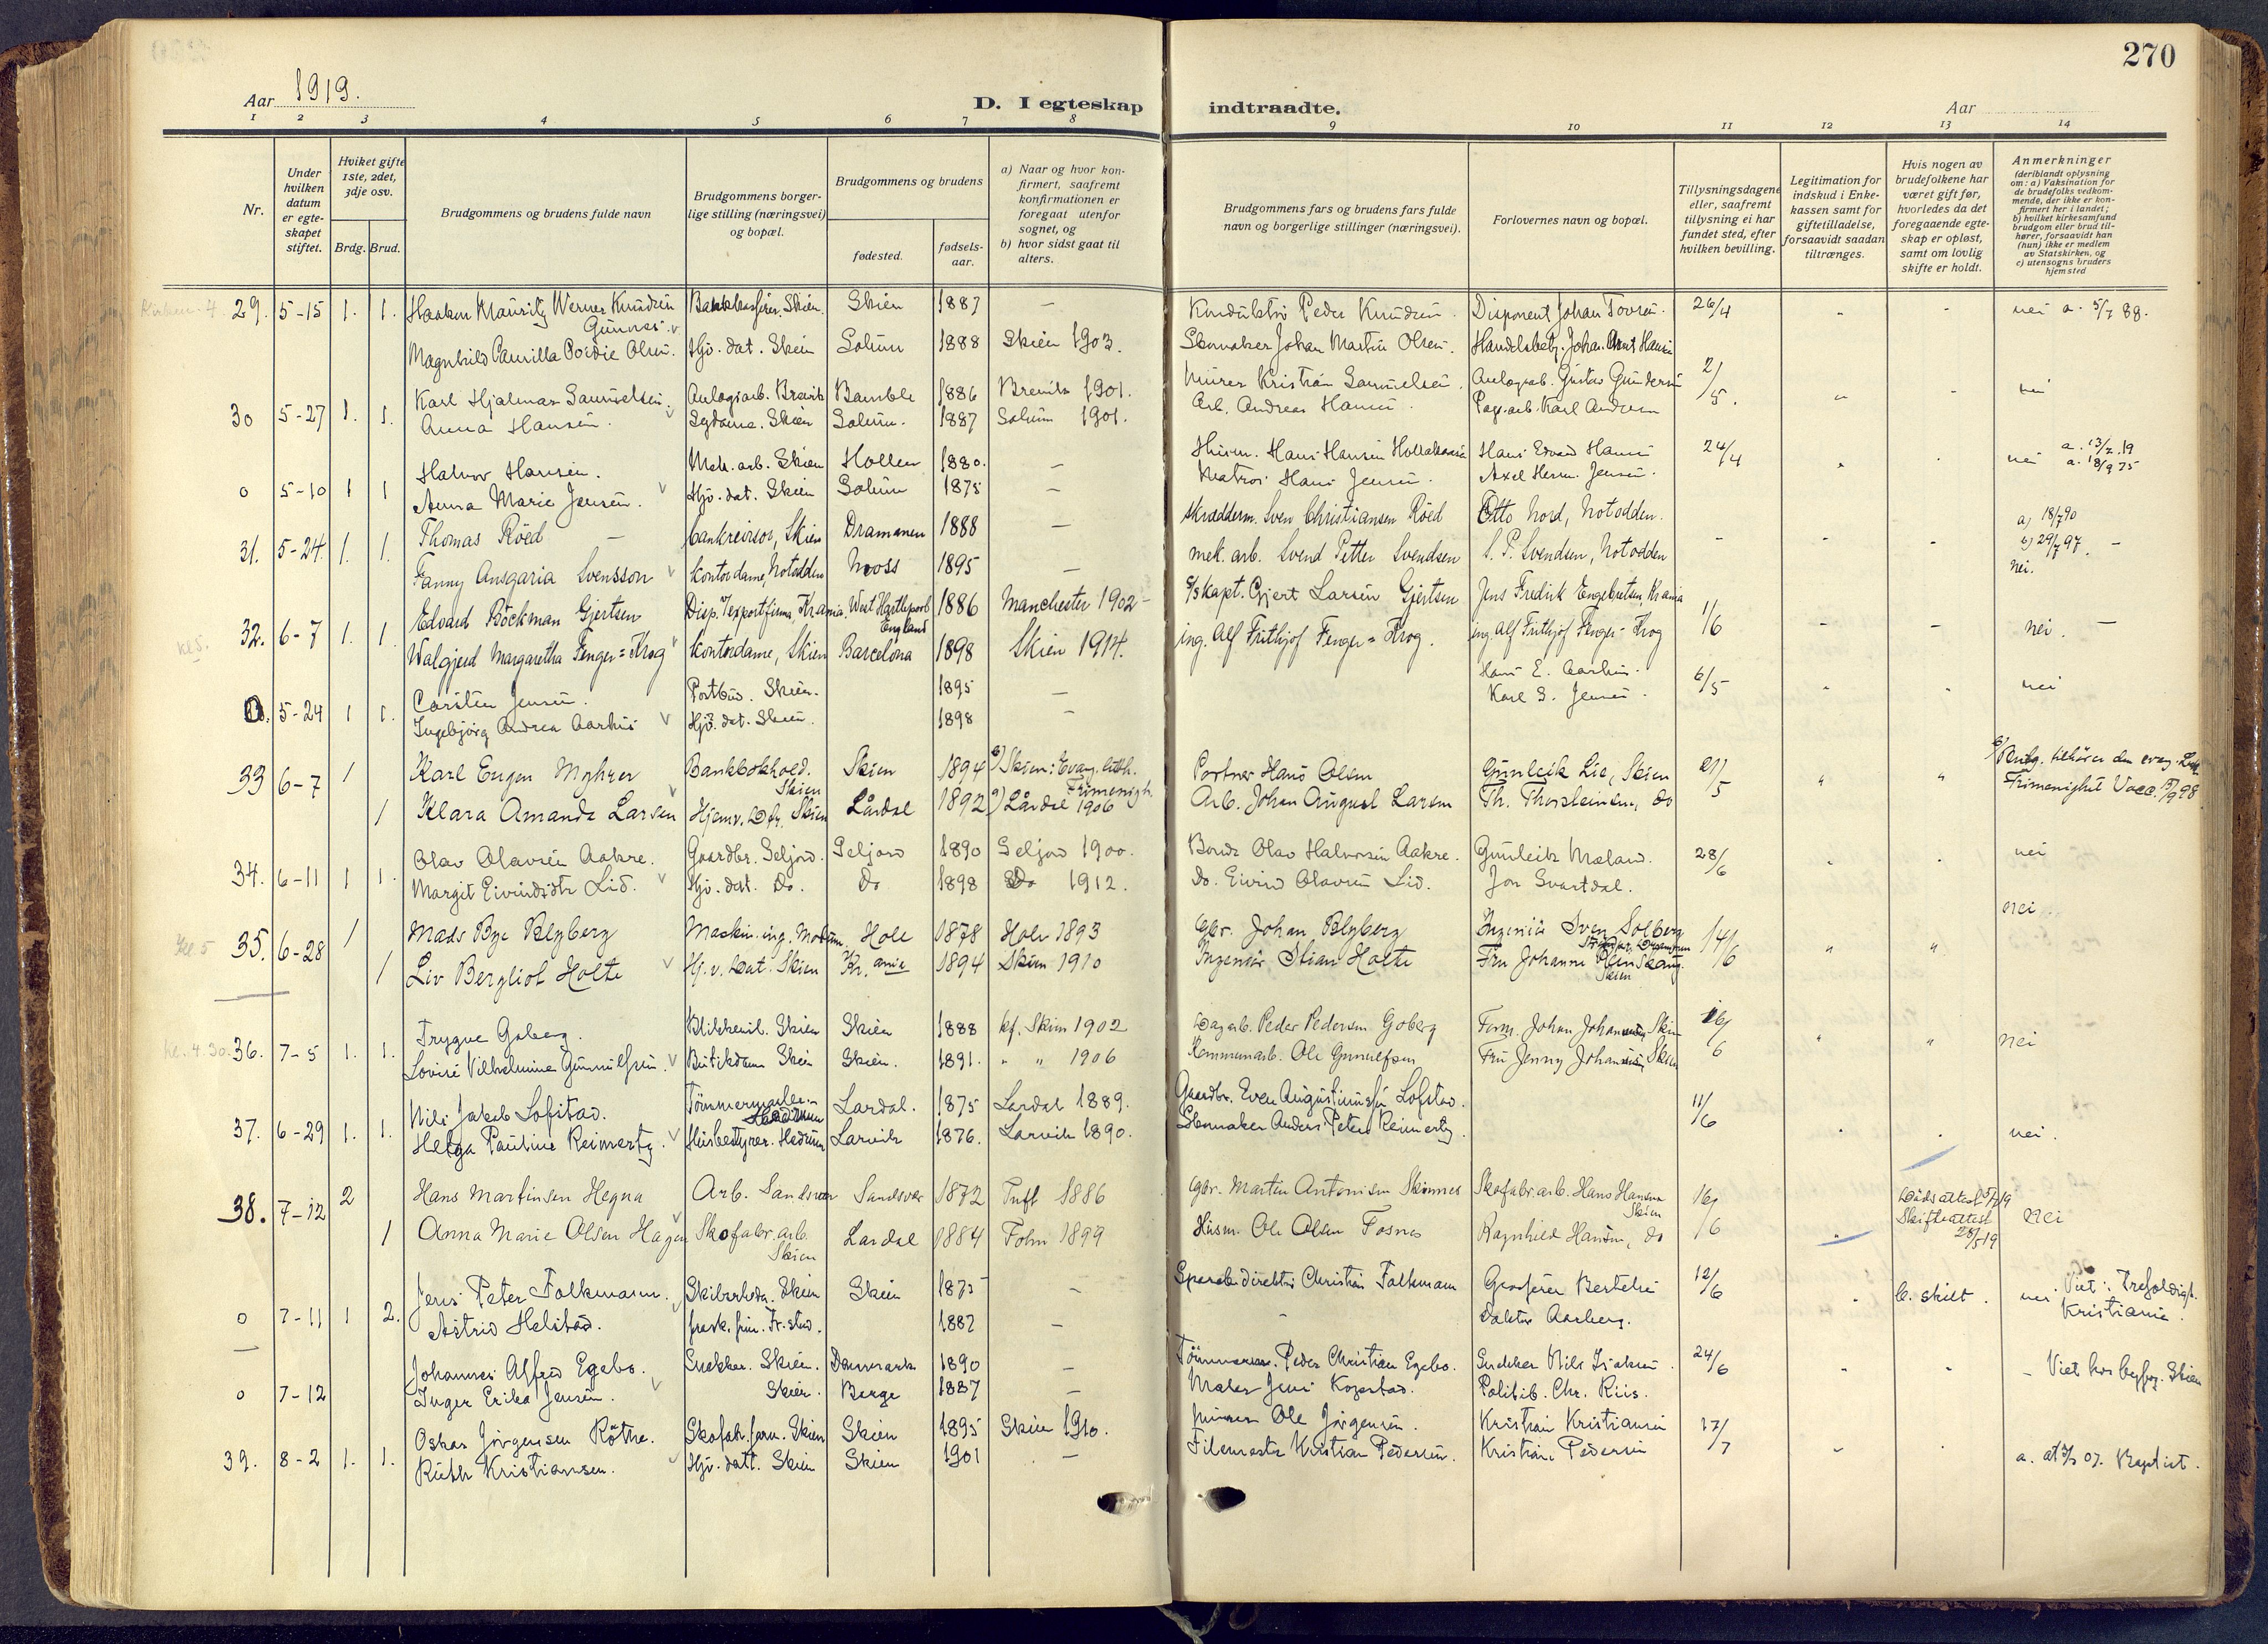 270
Aar 1919.
D. I egteskap indtraadte.
Aar
1 2 3 4 5 6 7 8 9 10 11 12 13 14
Nr.
Under hvilken datum er egte-skapet stiftet.
Hviket gifte 1ste, 2det, 3dje osv.
Brdg. Brud.
Brudgommens og brudens fulde navn
Brudgommens borger-lige stilling (næringsvei) og bopæl.
Brudgommens og brudens
fødested.
fødsels-aar.
a) Naar og hvor kon-firmert, saafremt konfirmationen er foregaat utenfor sognet, og
b) hvor sidst gaat til alters.
Brudgommens fars og brudens fars fulde navn og borgerlige stillinger (næringsvei).
Forlovernes navn og bopæl.
Tillysningsdagene eller, saafremt tillysning ei har fundet sted, efter hvilken bevilling.
Legitimation for indskud i Enke-kassen samt for giftetilladelse, forsaavidt saadan tiltrænges.
Hvis nogen av brudefolkene har været gift før, hvorledes da det foregaaende egte-skap er opløst, samt om lovlig skifte er holdt.
Anmerkninger (deriblandt oplysning om: a) Vaksination for de brudefolks vedkom-mende, der ikke er kon-firmert her i landet; b) hvilket kirkesamfund brudgom eller brud til-hører, forsaavidt han (hun) ikke er medlem av Statskirken, og c) utensogns bruders hjemsted
29. 5-15 1. 1. Haakon Mauritz Werner Knudsen Gunnes. Skien 1887 — Konduktør Peder Knudsen. Disponent Johan Tovsen. 26/4 nei a. 5/7 88.
Magnhild Camilla Olsen. Hjv. dat. Skien Solum 1888 Skien 1903. Skomaker Johan Martin Olsen.
30 5-27 1. 1. Karl Hjalmar Samuelsen. Anlægsarb. Brevik Bamble 1886 Brevik 1901. Murer Kristian Samuelsen. Anlægsarb. Gustav Gundersen 2/5. nei
Anna Hansen. Sydame. Skien Solum. 1887 Solum 1901. Arb. Andreas Hansen. Karl Andersen
0 5-10 1 1 Halvor Hansen. Mek. arb. Skien Hollen 1880. — Hans Hansen Hans Edvard Hansen 24/4 nei a. 13/2.19
Anna Marie Jensen. Hjv. dat. Skien Solum 1875 — Matros Hans Jensen. Axel Herm. Jensen. a. 18/9 75
31. 5-24. 1. 1. Thomas Röed — bankrevisor, Skien Dramanen 1888 — Skrædderm. Sven Christiansen Röed Otto Nord, Notodden. — a) 18/7 90
Fanny Ansgaria Svensson kontordame, Notodden Moss 1895 — mek. arb. Svend Petter Svendsen S. P. Svendsen, Notodden b) 29/7 97. — nei.
32. 6-7 1. 1. Edvard Böckman Gjertsen Disp. v/ exportfirma, Krania. West Hartlepool England 1886 Manchester 1902 — S/S kapt. Gjert Larsen Gjertsen Jens Fredrik Engebretsen, Krania 1/6 nei. —
Walgjerd Margaretha Fenger=Krog kontordame, Skien Barcelona 1898 Skien 1914. ing. Alf Frithjof Fenger=Krog. ing. Alf Frithjof Fenger=Krog
0. 5-24 1 1. Carsten Jensen. Postbud. Skien. 1895 — Hans E. Aarhus. 6/5 nei
Ingebjörg Andrea Aarhus Hjv. dat. Skien. 1898 — Karl S. Jensen.
33 6-7 1 Karl Eugen Myhrer Bankbokhold. Skien Skien 1894 b) Skien: Evang. luth. Frimenigh. Portner Hans Olsen Gunleik Lie, Skien 21/5 b) Brdg. tilhører den evang. Luth. Frimenighet Vacc. 15/9 98
1 Klara Amanda Larsen Hjemv. Dtr. Skien Lårdal 1892 a) Lårdal 1906 Arb. Johan August Larsen Th. Thorsteinsen, do
34. 6-11 1 1. Olav Olavsen Aakre. Gaardbr. Seljord. Seljord 1890 Seljord 1900. Bonde Olav Halvorsen Aakre. Gunleik Mæland. 28/6 nei
Margit Eivindsdtr Lid. Hjv. dat. Do. Do 1898 Do 1912. Do. Eivind Olavsen Lid. Jon Svartdal.
Kl 5 35. 6-28 1 Mads Bye Blyberg Maskin. ing. Modum Hole 1878 Hole 1893 Gbr. Johan Blyberg Ingeniör Sven Solberg 14/6 nei
1 Liv Bergliot Holte Hj. v. Dat. Skien Kr. ania 1894 Skien 1910 Ingeniör Stian Holte Fru Johanne Skien
Kl. 4.30. 36. 7-5 1. 1. Trygve Goberg. Blikkensl. Skien Skien 1888 kf. Skien 1902 Dagarb. Peder Pedersen Goberg Form. Johan Johansen, Skien 16/6 nei
Lovise Vilhelmine Gunnulfsen. Butikdame Skien Skien. 1891. " " 1906 Kommunearb. Ole Gunnulfsen Fru Jenny Johansen, Skien
37. 6-29 1. 1. Nils Jakob Lofstad. Tömmermester Hedrum Lardal. 1875 Lardal 1889. Gaardbr. Even Augustinussen Lofstad. 11/6 nei.
Helga Pauline Reimertz. Husbestyrer. Hedrum Larvik 1876. Larvik 1890. Skomaker Anders Peter Reimertz.
38. 7-12 2 Hans Martinsen Hegna Arb. Sandsvær Sandsvær 1872 Tuft 1886 Gbr. Martin Antonisen Skinnes Skofabr. arb. Hans Hansen Skien 16/6 Dödsattest 5/7 19 Skifteattest 28/5 19 nei
1 Anna Marie Olsen Hagen Skofabr. arb. Skien Lardal 1884 Folm 1899 Husm. Ole Olsen Fosnes Ragnhild Hansen, do
0 7-11 1 2. Jens Peter Folkmann. Skibsreder. Skien Skien 1875 — Sparebk. direktör Christian Folkmann Grosserer Bertelsen 12/6 b. skilt. nei Viet: Trefoldigh. Kristiania.
Astrid Helstad. 1882 — Doktor Aarberg.
0 7-12 Johannes Alfred Egebo. Snekker. Skien. Danmark 1890 — Tömmerm. Peder Christian Egebo. Snekker Nils Isaksen. 24/6 — Viet hos byfog. Skien
Inger Erika Jensen. Skien. Berge 1887 — Maler Jens Kopstad. Politib. Chr. Riis.
39. 8-2 1. 1. Oskar Jörgensen Röthe. Skofab. form. Skien Skien 1895 Skien 1910. Ole Jörgensen. Kristian Kristiansen 17/7
Ruth Kristiansen. Hjv. datt. Skien Skien 1901 — Kristian Pedersen. Kristian Pedersen a. 07. Baptist.